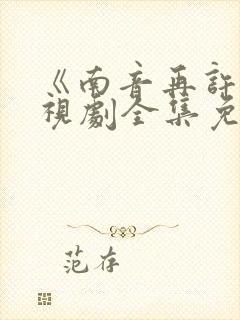 《南音再許
視劇全集免
范存